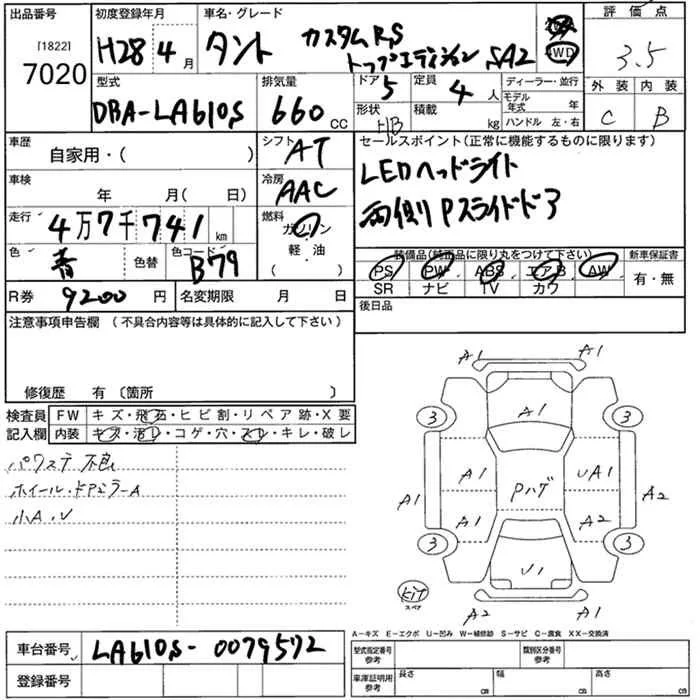 出品番号 初度登録年月 車名・グレード 評価点
[1822] 7020 H28 4月 タント カスタムRS トップエディション SA2 4WD 3.5
型式 排気量 ドア 定員 ディーラー・並行 外装 内装
DBA-LA610S 660cc 5 4人 モデル年式 年 C B
形状 H/B 積載 kg ハンドル 左・右
車歴 シフト セールスポイント(正常に機能するものに限ります)
自家用・( ) AT LEDヘッドライト
車検 冷房 両側Pスライドドア
年 月(日) AAC
走行 燃料
4万7千741km ガソリン
色 色コード 軽・油 装備品(純正品に限り丸をつけて下さい) 新車保証書
青 色替 B79 ( ) PS PW ABS エアB AW 有・無
SR ナビ TV カワ
R券 9200円 名変期限 月 日 後日品
注意事項申告欄(不具合内容等は具体的に記入して下さい)
修復歴 有〔箇所 〕
検査員 FW キズ・飛石・ヒビ割・リペア跡・X要
記入欄 内装 キズ・汚レ・コゲ・穴・スレ・キレ・破レ
パワステ不良
ホイール・ドアミラーA
小A.U
A1 A1
A1
3 3
A1 A1 Pハゲ UA1 A2
A1 A2
3 3
U1
kit
スペア
A2 A1
A-キズ E-エクボ U-凹み W-補修跡 S-サビ C-腐食 XX-交換済
車台番号 LA610S-0079572 型式指定番号 参考 類別区分番号 参考
登録番号 車庫証明用 参考 長さ cm 幅 cm 高さ cm